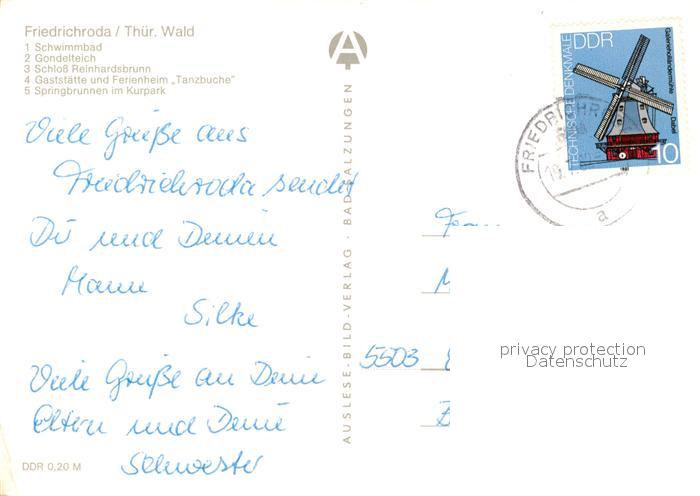 Friedrichroda / Thür. Wald
1 Schwimmbad
2 Gondelteich
3 Schloß Reinhardsbrunn
4 Gaststätte und Ferienheim „Tanzbuche"
5 Springbrunnen im Kurpark
Viele Grüße aus
Friedrichroda sendet
Dir und Deinen
Mann
Silke
Viele Grüße an Deine
Eltern und Deine
Schwester
DDR 0,20 M
AUSLESE-BILD-VERLAG · BAD SALZUNGEN
DDR
TECHNISCHE DENKMALE
Galerieholländermühle
Dabel
10
FRIEDRICHR
a
5503
privacy protection
Datenschutz